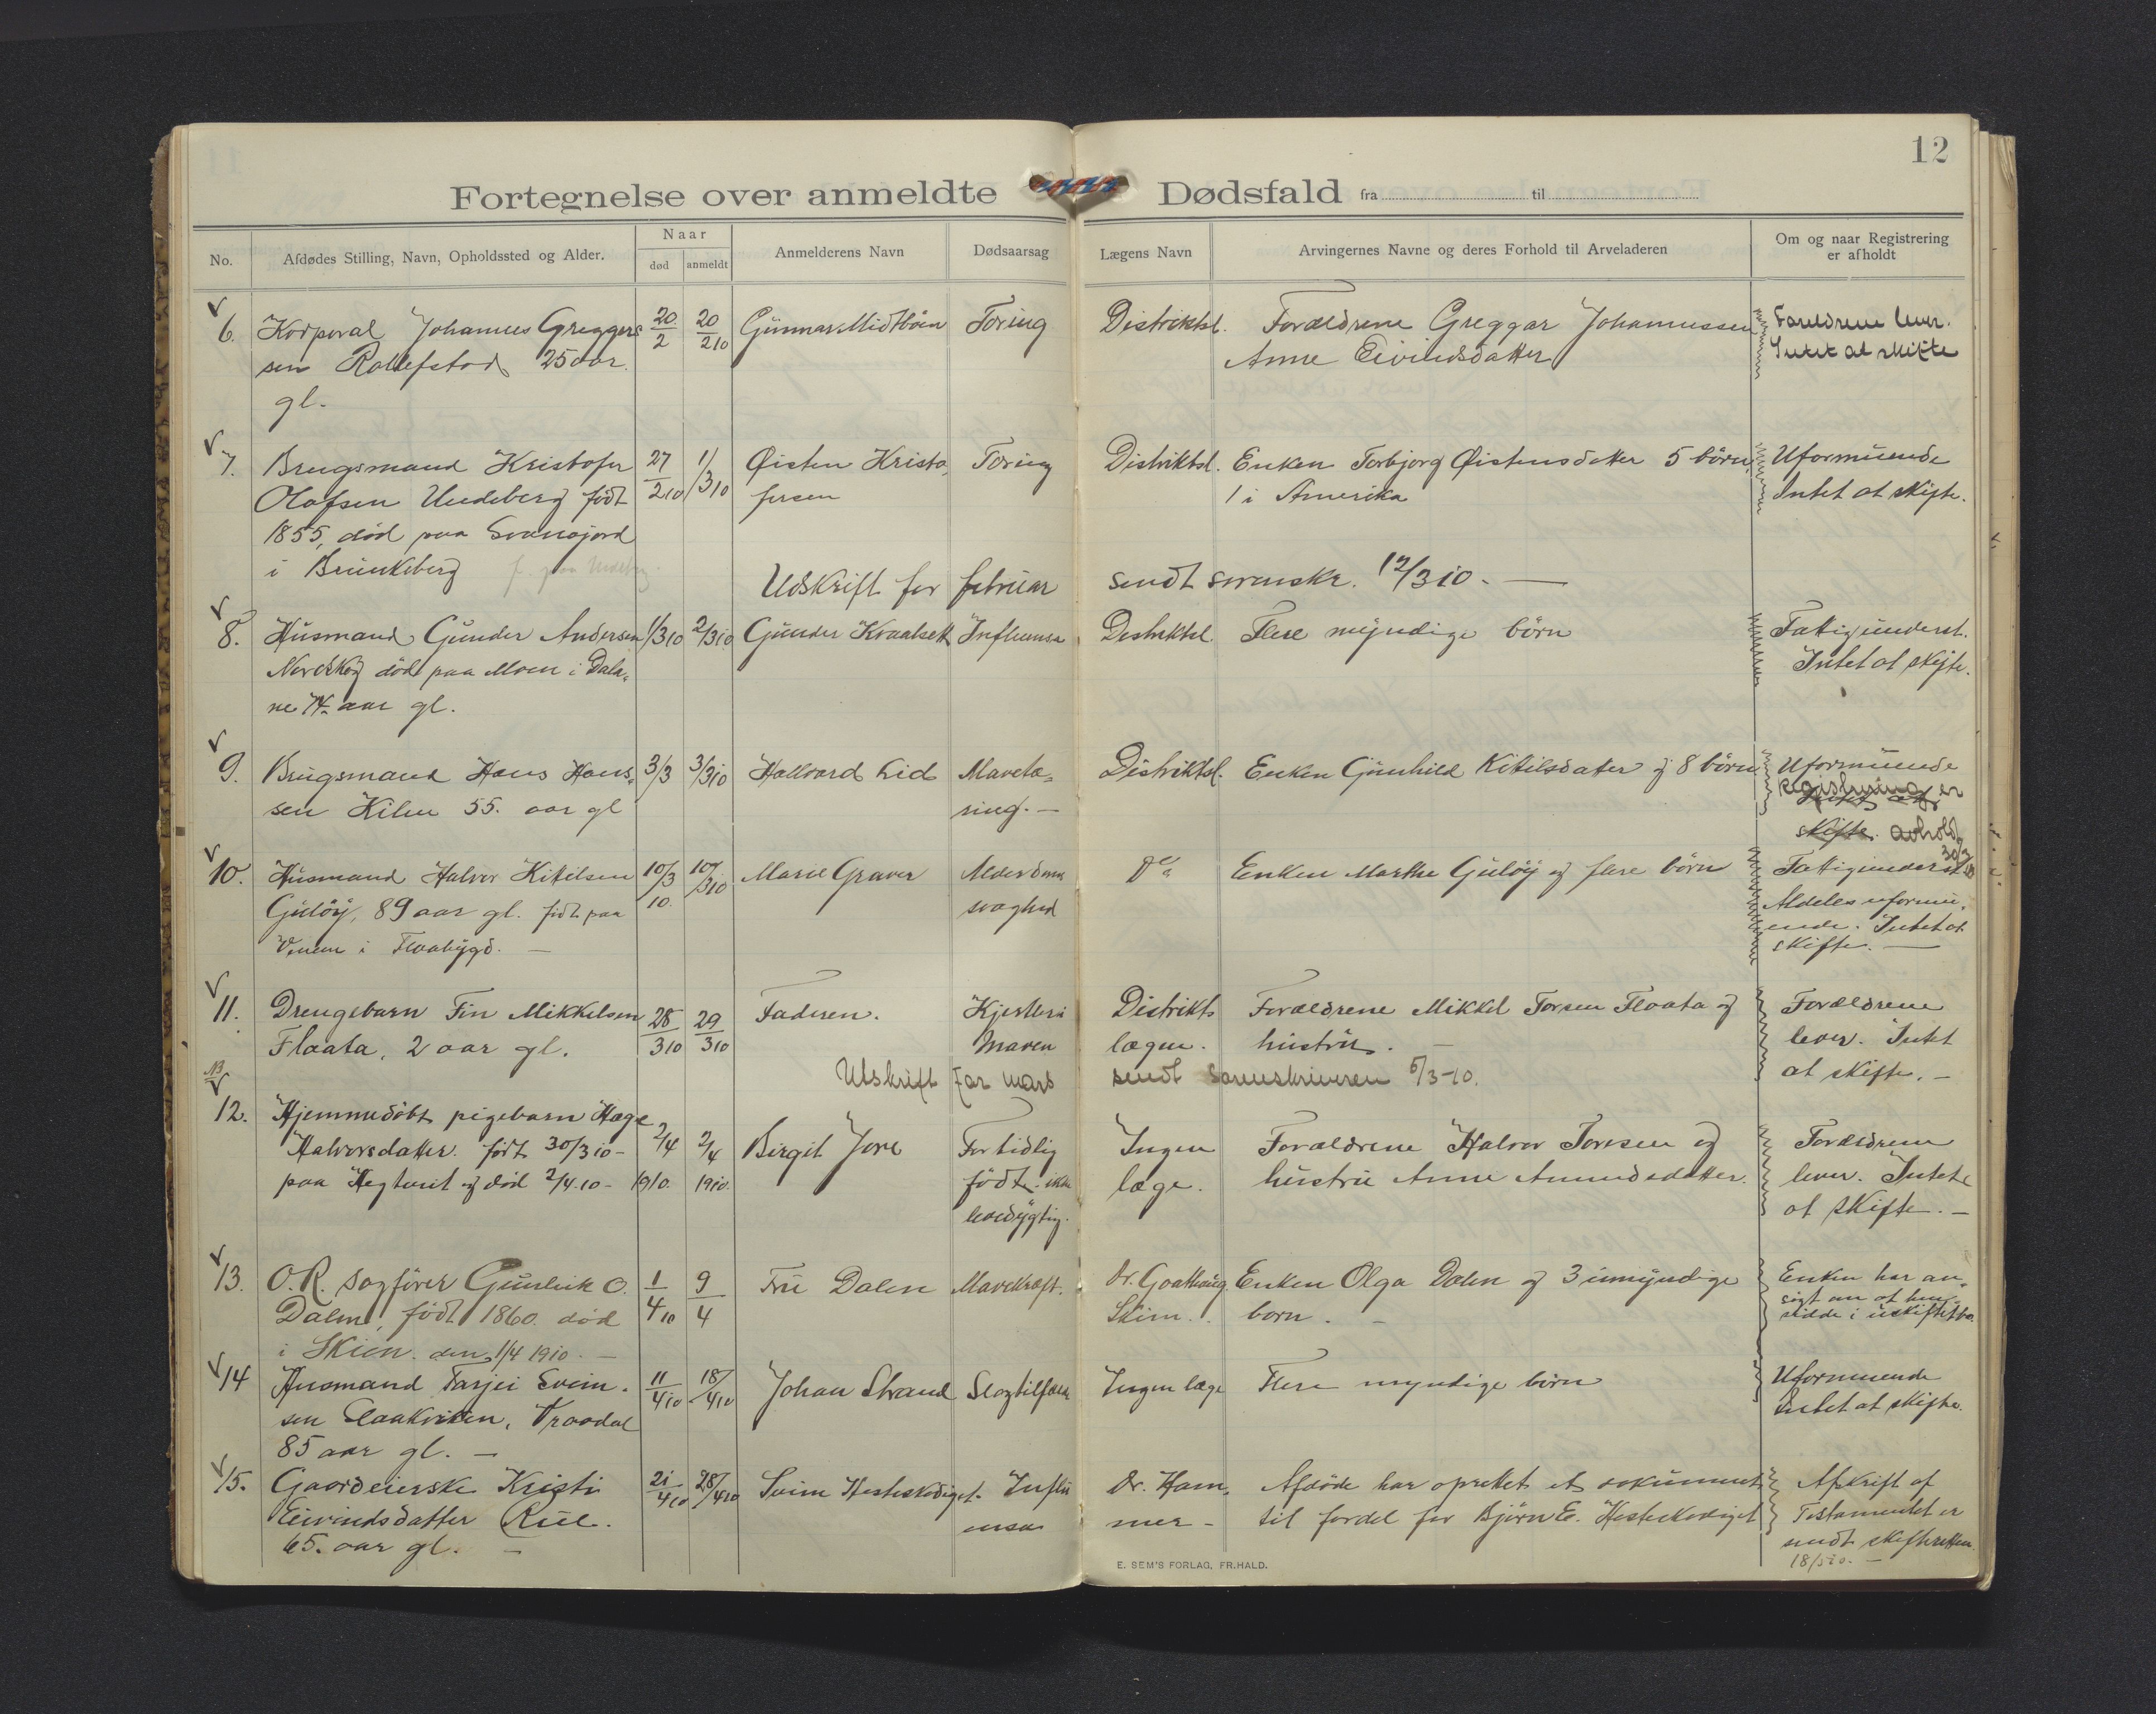 12
Fortegnelse over anmeldte Dødsfald fra til
No. Afdødes Stilling, Navn, Opholdssted og Alder. Naar død anmeldt Anmelderens Navn Dødsaarsag Lægens Navn Arvingernes Navne og deres Forhold til Arveladeren Om og naar Registrering er afholdt
6. Korporal Johannes Greggers 20/2 20/2 10 Gunnar Midtbøen Tæring Distriktsl. Forældrene Greggar Johannessen Foreldrene lever.
sen Rollefstad 25 aar Anne Eivindsdatter Intet at skifte
gl.
7. Brugsmand Kristofer 27/2 10 1/3 10 Øisten Kristo- Tæring Distriktsl. Enken Torbjorg Øistensdatter 5 børn, Uformuende
Olafsen Undeberg født fersen 1 i Amerika Intet at skifte.
1855, død paa Svanejord
i Brunkeberg
Udskrift for februar sendt sorenskr. 12/3 10. —
8. Husmand Gunder Andersen 1/3 10 2/3 10 Gunder Kvaalsett Influensa Distriktsl. Flere myndige børn Fattigunderst.
Nordskog død paa Moen i Dala- Intet at skifte.
ne 74 aar gl.
9. Brugsmand Hans Hans- 3/3 3/3 10 Hallvard Lid Mavetæ- Distriktsl. Enken Gunhild Kitilsdater og 8 børn Uformuende
sen Kilen 55. aar gl ring. — Registrering er
Intet at
skifte. avhold 30/3
10. Husmand Halvor Kitilsen 10/3 10. 10/3 10 Marie Graver Alderdoms Do Enken Marthe Guløy og flere børn Fattigunderst
Guløy, 89 aar gl. født paa svaghed Aldeles uformu-
Venum i Flaabygd. — ende. Intet at
skifte. —
11. Drengebarn Fin Mikkelsen 28/3 10 29/3 10 Faderen. Kjertler i Distrikts Forældrene Mikkel Torsen Flaata og Forældrene
Flaata, 2 aar gl. Maven lægen. hustru. — lever. Intet
at skifte. —
NB Utskrift for mars sendt Sorenskriveren 5/3-10.
12. Hjemmedøbt pigebarn Hæge 2/4 1910. 2/4 1910. Birgit Jore For tidlig Ingen Forældrene Halvor Toresen og Forældrene
Halvorsdatter. født 30/3 10 - født. ikke læge. hustru Anne Amundsdatter. lever. Intet
paa Hegtveit og død 2/4-10 - levedygtig. at skifte. —
13. O.R. sagfører Gunleik O. 1/4 10 9/4 Fru Dalen Mavekræft. Dr. Goathaug Enken Olga Dalen og 3 umyndige Enken har an-
Dalen, født 1860. død Skien. børn. — søgt om at hen-
i Skien. den 1/4 1910. — sidde i uskiftet bo.
14 Husmand Tarjei Svein- 11/4 10 18/4 10 Johan Strand Slagtilfælde Ingen læge Flere myndige børn Uformuende
sen Slaakviken, Vraadal Intet at skifte.
85 aar gl. —
15. Gaardeierske Kristi 21/4 10 28/4 10 Svein Hesteskodiget. Influ Dr. Ham- Afdøde har oprettet et dokument Afskrift af
Eivindsdatter Rue. ensa mer - til fordel for Bjørn E. Hesteskodiget Testamentet er
65. aar gl. — sendt skifteretten.
18/5 10. —
E. SEM'S FORLAG, FR.HALD.